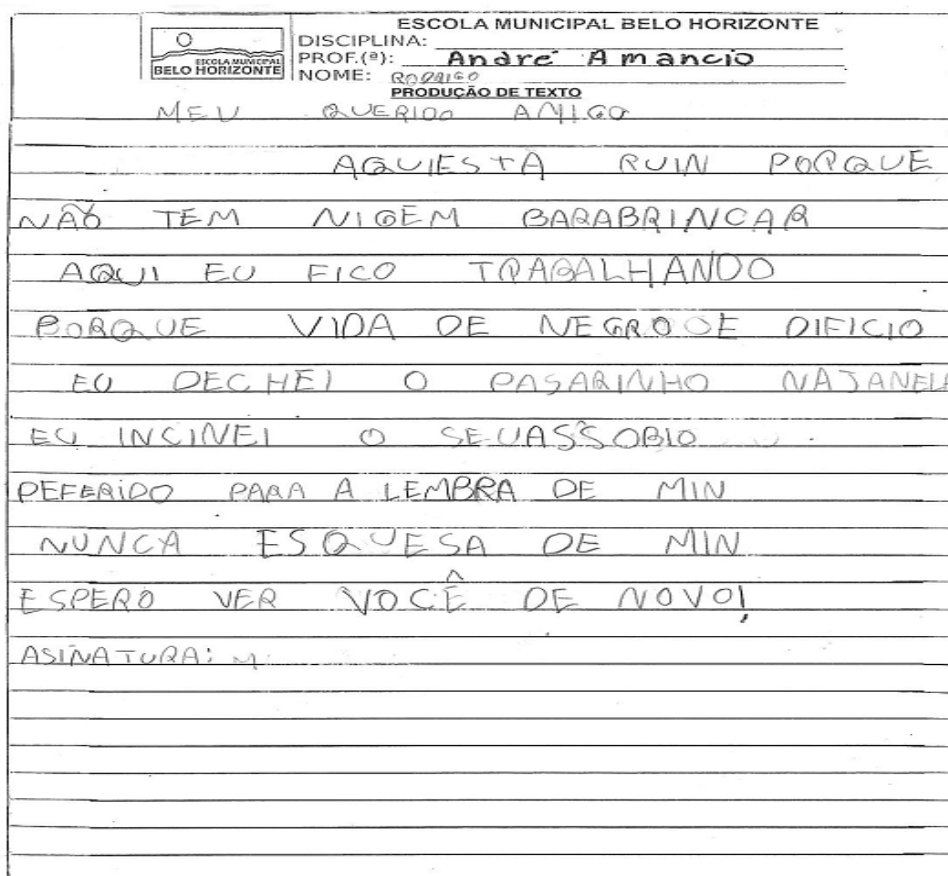 ESCOLA MUNICIPAL BELO HORIZONTE
DISCIPLINA:
ESCOLA MUNICIPAL
BELO HORIZONTE
PROF.(ª): André Amancio
NOME: RODRIGO
PRODUÇÃO DE TEXTO
MEU QUERIDO AMIGO
AQUIESTA RUIN PORQUE
NÃO TEM NIGEM BARABRINCAR
AQUI EU FICO TRABALHANDO
PORQUE VIDA DE NEGRO E DIFICIO
EU DECHEI O PASARINHO NAJANELA
EU INCINEI O SEUASSOBIO
PEFERIDO PARA A LEMBRA DE MIN
NUNCA ESQUESA DE MIN
ESPERO VER VOCÊ DE NOVO!
ASINATURA: